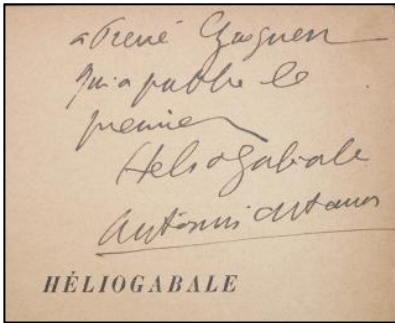 à René
qui a publié le
premier
Heliogabale
Antonin Artaud
HÉLIOGABALE